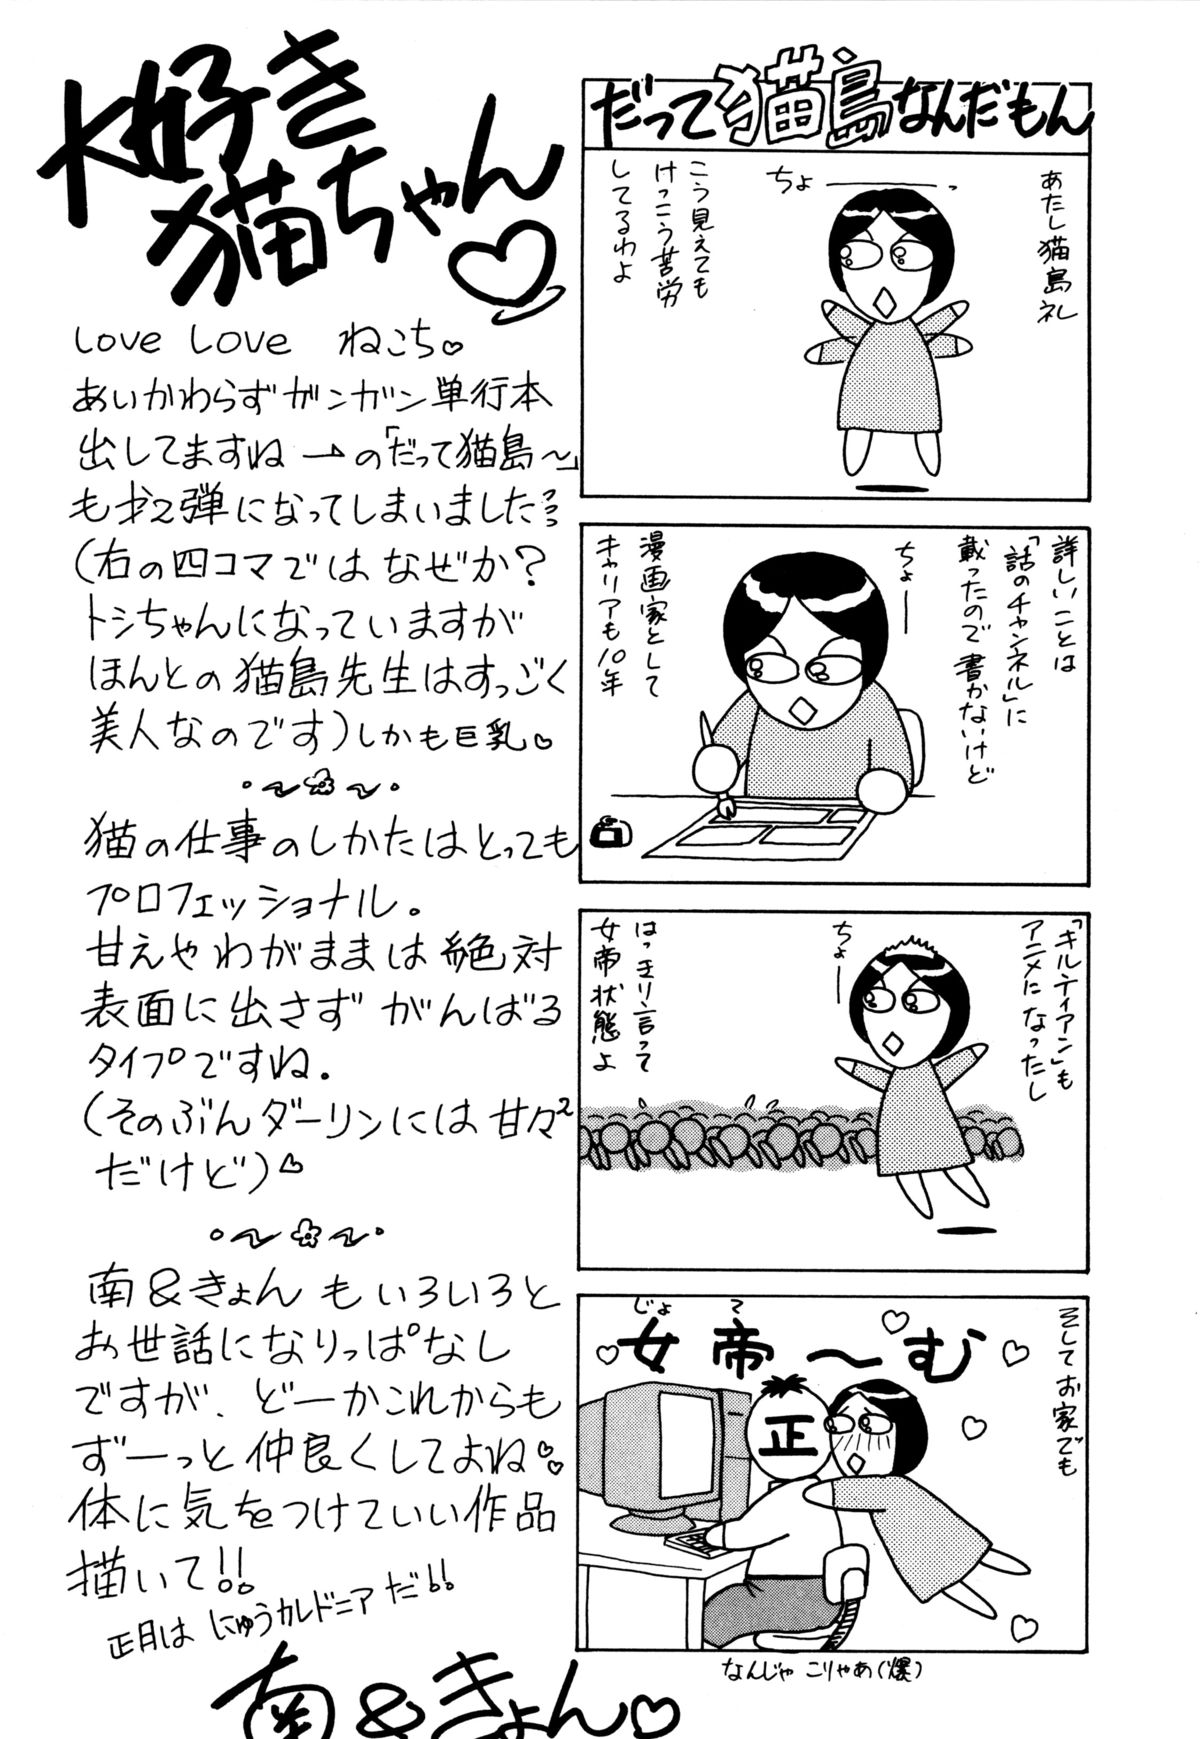 大好き
猫ちゃん♡
LOVE LOVE ねこち♡
あいかわらずガンガン単行本
出してますね→の「だって猫島〜」
も才2弾になってしまいました
(右の四コマではなぜか?
トシちゃんになっていますが
ほんとの猫島先生はすっごく
美人なのです)しかも巨乳♡
猫の仕事のしかたはとっても
プロフェッショナル。
甘えやわがままは絶対
表面に出さずがんばる
タイプですね.
(そのぶんダーリンには甘々²
だけど)♡
南&きょんもいろいろと
お世話になりっぱなし
ですが、どーかこれからも
ずーっと仲良くしてよね♡
体に気をつけていい作品
描いて!!
正月はにゅうカレドニアだ!!
南&きょん♡
だって猫島なんだもん
あたし猫島礼
ちょーっ
こう見えても
けっこう苦労
してるわよ
詳しいことは
「話のチャンネル」に
載ったので書かないけど
ちょー
漫画家として
キャリアも10年
「ギルティアン」も
アニメになったし
ちょー
はっきり言って
女帝状態よ
そしてお家でも
じょ て
女帝〜む
正
なんじゃこりゃあ(爆)